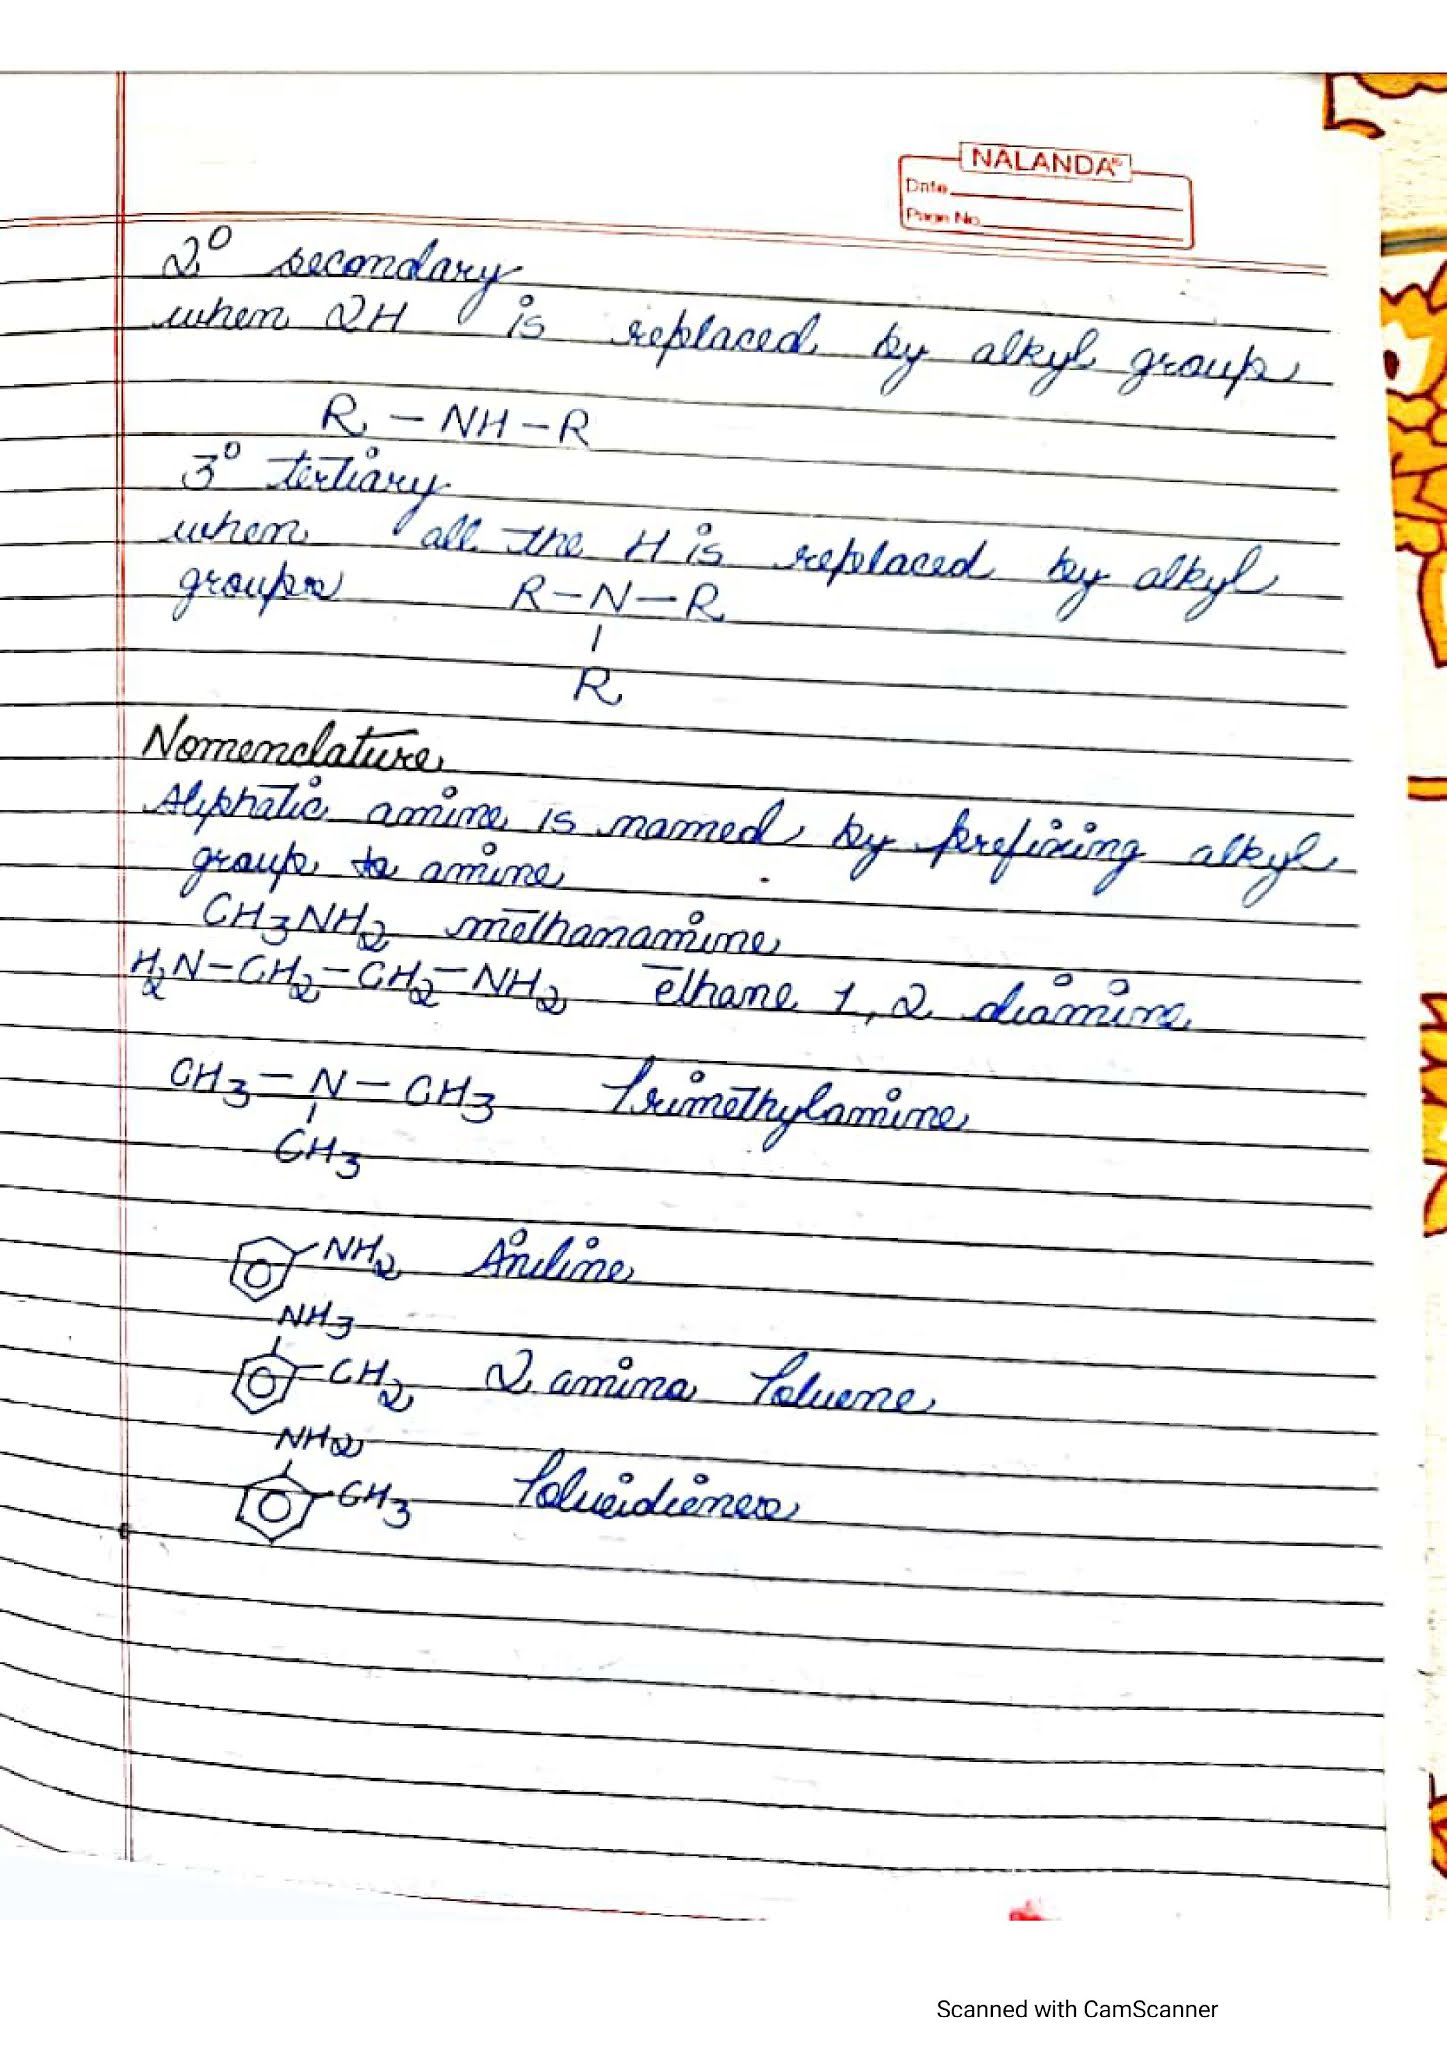 NALANDA
Date
Page No
2° secondary
when 2H is replaced by alkyl group
R - NH - R
3° tertiary
when all the H is replaced by alkyl
groups
R-N-R
|
R
Nomenclature
Aliphatic amine is named by prefixing alkyl
group to amine
CH3NH2 methanamine
H2N-CH2-CH2-NH2 ethane 1,2 diamine
CH3-N-CH3 Trimethylamine
|
CH3
NH2 Aniline
NH3
CH2 2 amino Toluene
NH2
CH3 Tolueidienes
Scanned with CamScanner